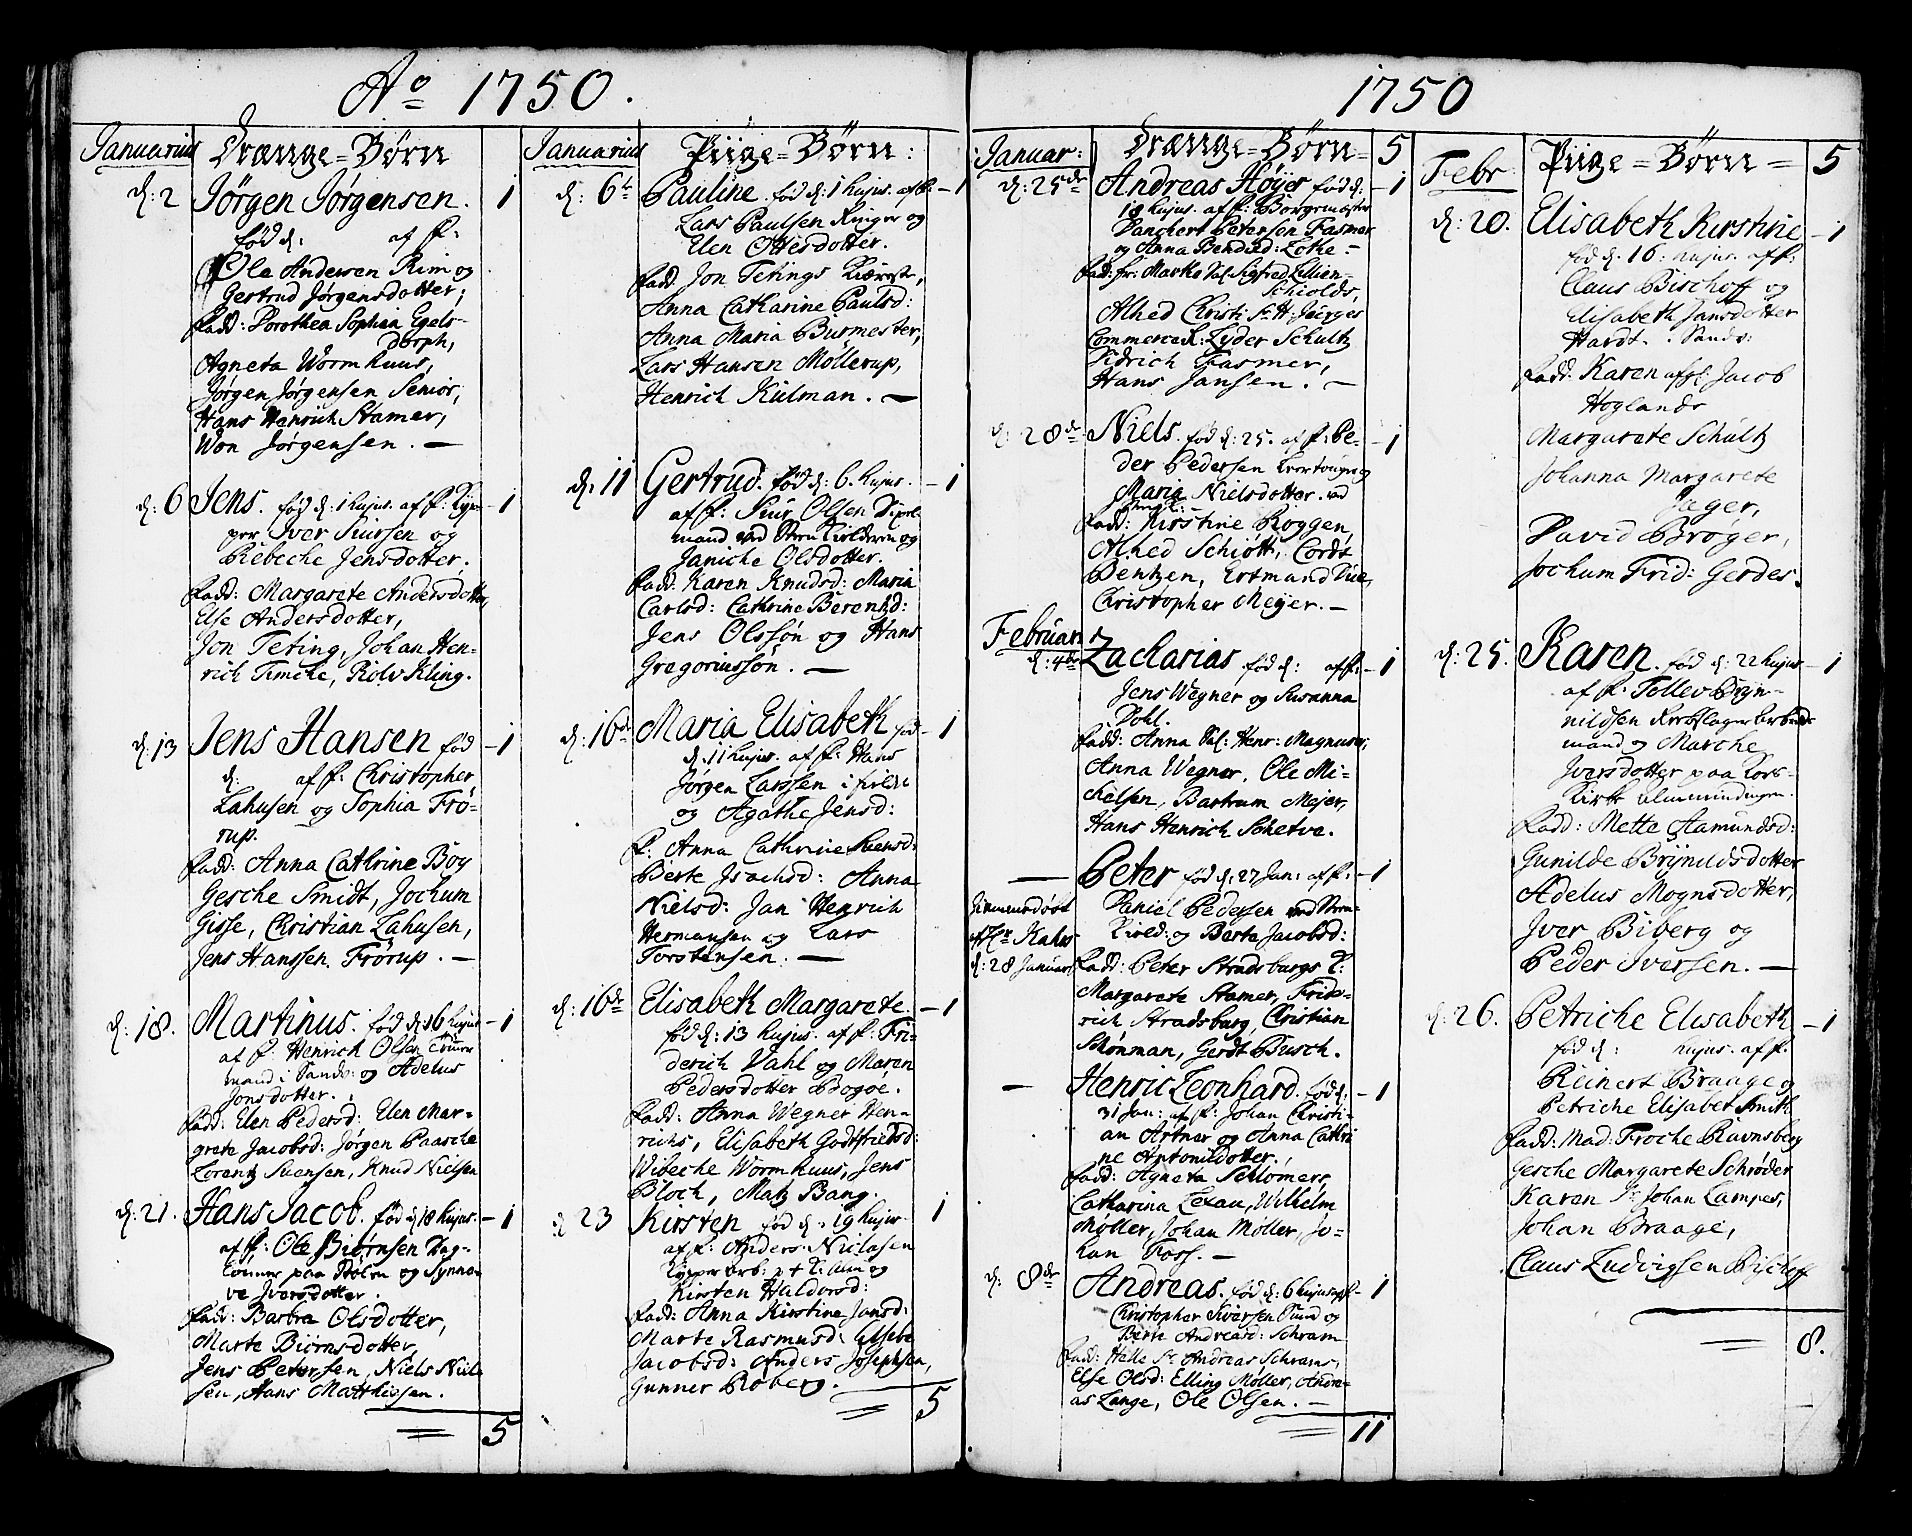 Ao 1750.
Januarius
Drænge=Børn
d: 2
Jørgen Jørgensen. 1
fød d: af f:
Ole Andersen Rim og
Gertrud Jørgensdotter;
fadd: Dorothea Sophia Egels-
dorph,
Agneta Wormhuus,
Jørgen Jørgensen Senior,
Hans Henrich Stamer,
Won Jørgensen. —
d: 6 Jens. fød d: 1 hujus. af f: Kyp- 1
per Iver Siursen og
Rebeche Jensdotter.
fadd: Margarete Andersdotter,
Else Andersdotter,
Jon Teting, Johan Hen-
rich Timche, Rolv Kling.
d: 13 Jens Hansen fød - 1
d: af f: Christopher
Lahusen og Sophia Frö-
rup.
fadd: Anna Cathrine Boy
Gesche Smidt, Jochum
Gisse, Christian Lahusen,
Jens Hanssen Frörup. —
d: 18. Martinus. fød d: 16 hujus - 1
af f: Henrich Olsen
mand i Sandv: og Adelus
Jonsdotter.
fad: Elen Pedersd: Elen Mar-
grete Jacobsd: Jørgen Paasche
Lorentz Svensen, Knud Nielsen
d: 21. Hans Jacob. fød d: 18 hujus. - 1
af f: Ole Biørnsen Dag-
lönner paa Nölen og Synno-
ve Iversdotter.
fad: Barbra Olsdotter,
Marte Biörnsdotter,
Jens Petersen, Niels Niel-
sen, Hans Matthiessen.
5
Januarius
Piige=Børn:
d: 6t Pauline. fød d: 1 hujus. af f: - 1
Lars Paulsen Ringer og
Elen Ottesdotter.
fadd: Jon Tetings Kiæreste,
Anna Catharine Paulsd:
Anna Maria Burmester,
Lars Hansen Möllerup,
Henrich Kulman. —
d. 11 Gertrud. fød d: 6. hujus. - 1
af f: Siur Olsen
mand ved og
Janiche Olsdotter.
fadd: Karen Knudsd: Maria
Carlsd: Cathrine Berentsd:
Jens Olssön og Hans
Gregoriussön. —
d: 16de Maria Elisabeth fød - 1
d. 11 hujus. af f: Hans
Jørgen Larssen i
og Agathe Jensd:
f: Anna Cathrine Svensd:
Berte Isachsd: Anna
Nielsd: Jan Henrich
Hermansen og Lars
Torstensen. —
d: 16de Elisabeth Margarete. - 1
fød d: 13 hujus. af f: Fri-
derich Vahl og Maren
Pedersdotter Bogöe.
fadd: Anna Wegner Hen-
richs, Elisabeth Godtfriedsd:
Wibeche Wormhuus, Jens
Bloch, Matz Bang.
d: 23 Kirsten fød d. 19 hujus. 1
af f: Anders Niclasen
Kypper og
Kirsten Haldorsd:
fad: Anna Kirstine Jansd:
Marte Rasmusd: Elsebe
Jacobsd: Anders Josephsen,
Gunner Roberg.
5
1750
Januar:
Drænge=Børn= 5
d: 25de Andreas Höyer fød d: - 1
18 hujus. af f: Borgemester
Danchert Petersen Fasmer
og Anna Bended: Lothe —
fad: fr: Marko Sal: Sigfred Lillien-
schiolds,
Alhed Christi Sr H: Jürges
Commerce R: Lyder Schultz
Didrich Fasmer,
Hans Jansen. —
d: 28de Niels. fød d: 25. af f: Pe- - 1
der Pedersen og
Maria Nielsdotter. ved
fadd: Kirstine Roggen
Alhed Schiött, Cordt
Bentzen, Ertmand Vue,
Christopher Meyer. —
Februari
d: 4de Zacharias fød d: af f: - 1
Jens Wegner og Susanna
Pohl.
fadd: Anna Sal: Henr: Magnuses,
Anna Wegner, Ole Mi-
chelsen, Bartrum Mejer,
Hans Henrich Schetve.
— Peter fød d: 27 Jan: af f: - 1
Daniel Pedersen ved
og Berte Jacobsd:
af Hr Kahrs
d: 28 Januar
fadd: Peter Stradsburgs K:
Margarete Stamer, Frid-
rich Stradsburg, Christian
Schönman, Gerdt Busch.
— Henric Leonhard. fød d: - 1
31 Jan: af f: Johan Christi-
an Artner og Anna Cathri
ne Antonildotter.
fadd: Agneta Schlömers,
Catharina Lexau, Wilhelm
Møller, Johan Møller, Jo-
han Foss. —
d: 8de Andreas. fød d: 6 hujus af f - 1
Christopher Siversen og
Berte Andreasd: Schram
fadd: Helle Sr Andreas Schrams,
Else Olsd: Elling Møller, Andre-
as Lange, Ole Olsen. —
11
Febr:
Piige=Børn= 5
d: 20. Elisabeth Kirstine - 1
fød d. 16 hujus. af f:
Claus Bischoff og
Elisabeth Jansdotter
Hardt. Sandv:
fadd: Karen afgl Jacob
Hoglands
Margarete Schultz
Johanna Margarete
Jeger,
David Bröger,
Jochum Frid: Gerdes.
d: 25. Karen. fød d: 22 hujus - 1
af f. Tollev Bryn-
nildsen
mand og Marche
Iversdotter paa Kors-
Kirke
fadd: Mette Aamundsd:
Gunilde Brynildsdotter
Adelus Mognsdotter,
Iver Biberg og
Peder Iversen. —
d: 26. Petriche Elisabeth - 1
fød d: hujus. af f.
Reinert Braage og
Petriche Elisabet Smith
fadd: Mad: Froche Ravnsberg
Gesche Margarete Schröder
Karen Sr Johan Lampes,
Johan Braage,
Claus Ludvigsen Bischoff
8.